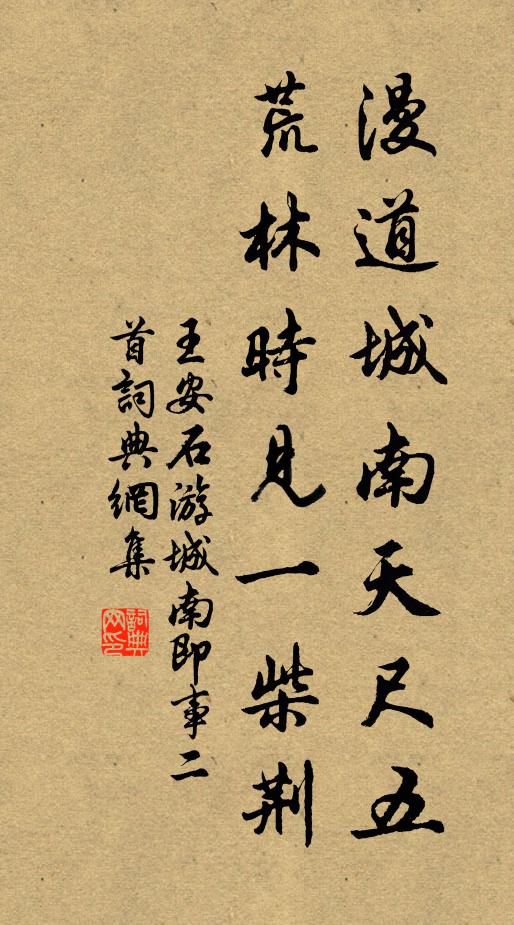 漫道城南天尺五
荒林時見一柴荆
王安石游城南即事二
首詞典網集
詞典
网印